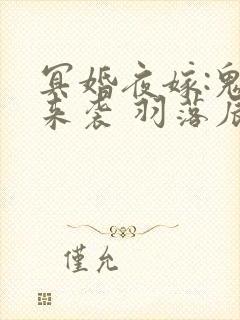 冥婚夜嫁:鬼
来袭 羽落辰
僅允